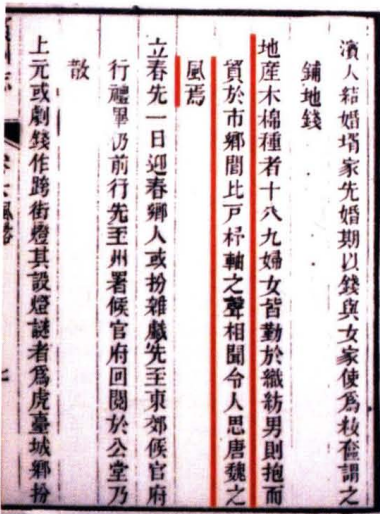 濱人結婚壻家先婚期以錢與女家使爲妝奩謂之
鋪地錢
地産木棉種者十八九婦女皆勤於織紡男則抱而
貿於市鄉間比戸杼軸之聲相聞令人思唐魏之
風焉
立春先一日迎春鄉人或扮雜戲先至東郊候官府
行禮畢仍前行先至州署候官府回閱於公堂乃
散
上元或劇錢作跨街燈其設燈謎者爲虎臺城鄉扮